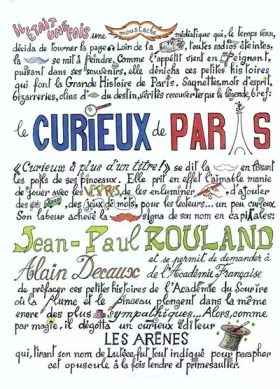 IL ÉTAIT UNE FOIS une moustache médiatique qui, le temps venu,
décida de tourner la page. Loin de la toutes radios éteintes,
la se mit à peindre. Comme l'appétit vient en peignant,
puisant dans ses souvenirs, elle dénicha ces petites histoires
qui font la Grande Histoire Paris. Saynettes, mots d'esprit,
bizarreries, clins d' du destin, vérités recousues par la légende, bref:
le CURIEUX de PARIS
"Curieux à plus d'un titre!" se dit la en tirant
les poils de ses pinceaux. Elle prit en effet l'aimable manie
de jouer avec les de les enluminer, d'ajouter
des des jeux de mots, pour les lecteurs... un peu curieux.
Son labeur achevé la signa de son nom en capitales:
Jean-Paul ROULAND
et se permit de demander à
Alain Decaux de l'Académie Française
de préfacer ces petites histoires de l'Académie du Sourire
où la plume et le pinceau plongent dans la même
encre des plus sympathiques... Alors, comme
par magie, il dégota un curieux éditeur
LES ARÈNES
qui, tirant son nom de Lutèce, fut tout indiqué pour parapher
cet opuscule à la fois tendre et primesautier.